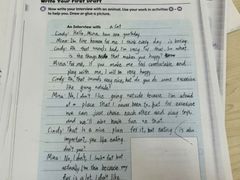 Write Your First Draft
Now write your interview with an animal. Use your work in activities
to help you. Draw or glue a picture.
An Interview with a cat
Cindy: Hello, Mina, how are you today?
Mina: I'm fine because for me, I think every day is boring.
Cindy: Oh, that sounds bad. I'm sorry for that. So what
is the things that makes you happy?
Mina: For me, if you make me feel comfortable, and
play with me, I will be very happy.
Cindy: Oh, that sounds very nice, but do you do some exercise
like going outside?
Mina: No, I don't like going outside because I'm afraid
of a place that I never been to, but for exercise
we can just choose each other and play toys,
and we'll also have fun in that.
Cindy: That is a nice place for it, but eating is also
important, you like eating
don't you?
Mina: No, I don't. I look fat but
actually I'm thin because my
fur is a lot. I don't like